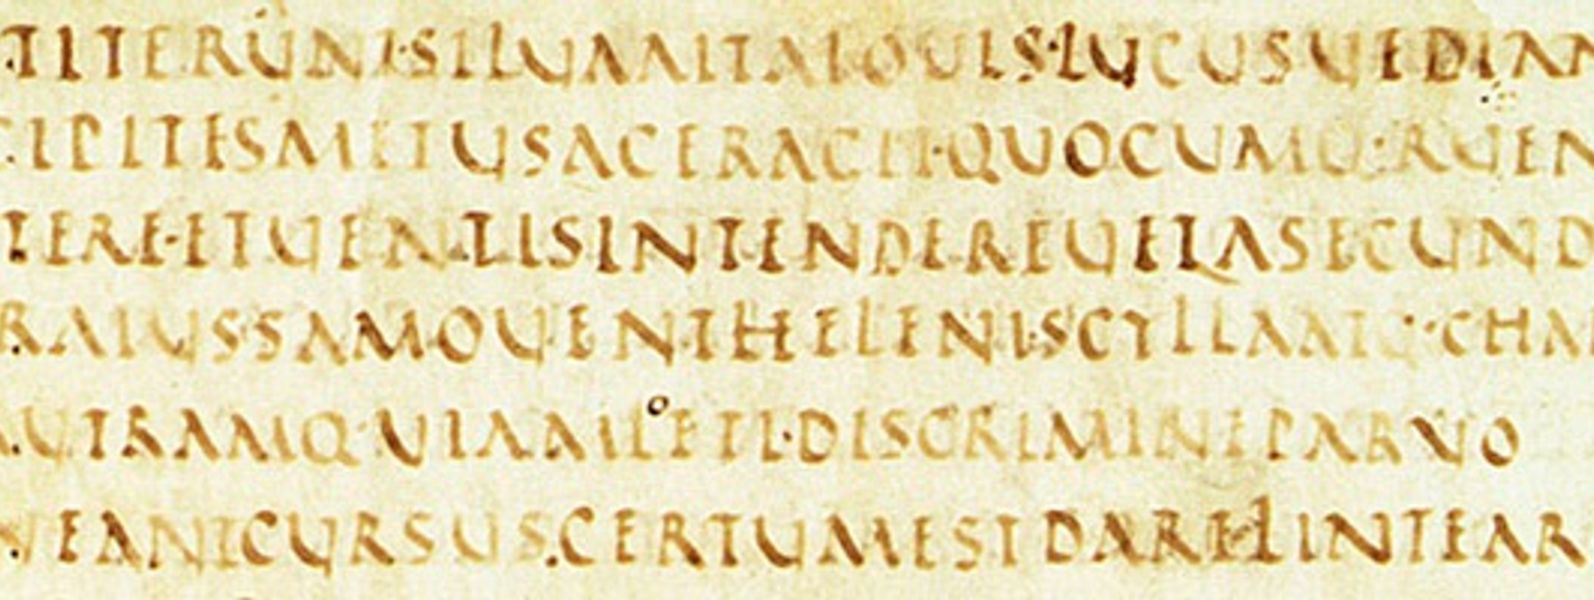 TITERUNT·SILUAALTAIOUIS·LUCUSUEDIAN
CIPITESMETUSACERAGIT·QUOCUMQ·RUDEN
TERE·ETUENTISINTENDEREUELASECUND
RAIUSSAMOUENTHELENI·SCYLLAMQ·CHA
UTRAMQ·UIAMLETI·DISCRIMINEPARUO
NEANTCURSUS·CERTUMESTDARELINTEAR